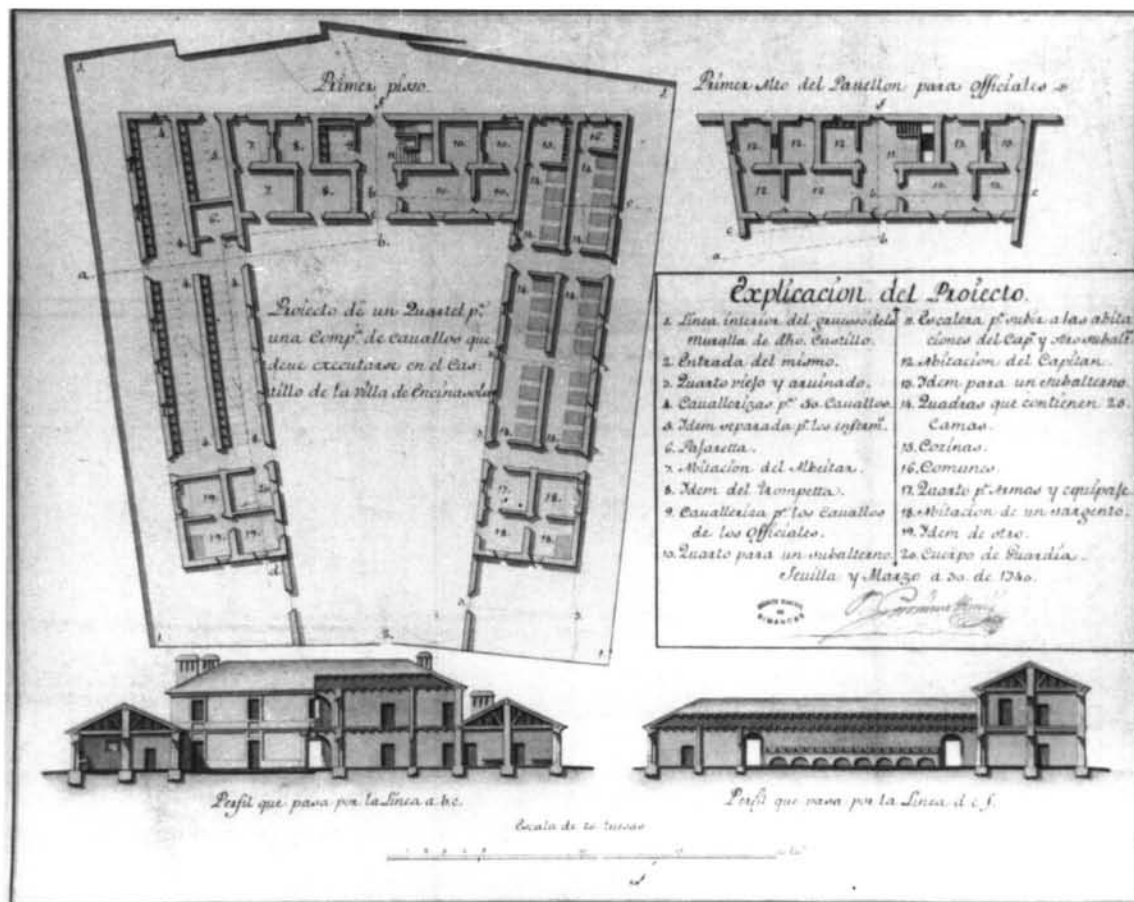 Primer pisso.
Primer Alto del Pauellon para Officiales
Proiecto de un Quartel pª
una Compª de cauallos que
deue executarse en el Cas-
tillo de la Villa de Encinasola
Explicacion del Proiecto.
1. Linea interior del gruesso dela
muralla de dho. Castillo.
2. Entrada del mismo.
3. Quarto viejo y aruinado.
4. Cauallerizas pª 50. Cauallos.
5. Idem separada pª los enferm.
6. Pajaretta.
7. Abitacion del Albeitar.
8. Idem del Trompetta.
9. Caualleriza pª los Cauallos
de los Officiales.
10. Quarto para un subalterno.
11. Escalera pª subir a las abita
ciones del Capⁿ y otro subaltⁿ
12. Abitacion del Capitan.
13. Idem para un subalterno.
14. Quadras que contienen 28.
Camas.
15. Cozinas.
16. Comunes.
17. Quarto pª Armas y equipaje.
18. Abitacion de un sargento.
19. Idem de otro.
20. Cuerpo de Guardia.
Seuilla y Marzo a 30. de 1740.
Perfil que pasa por la Linea a.b.c.
Perfil que pasa por la Linea d.e.f.
Escala de 20 tuesas